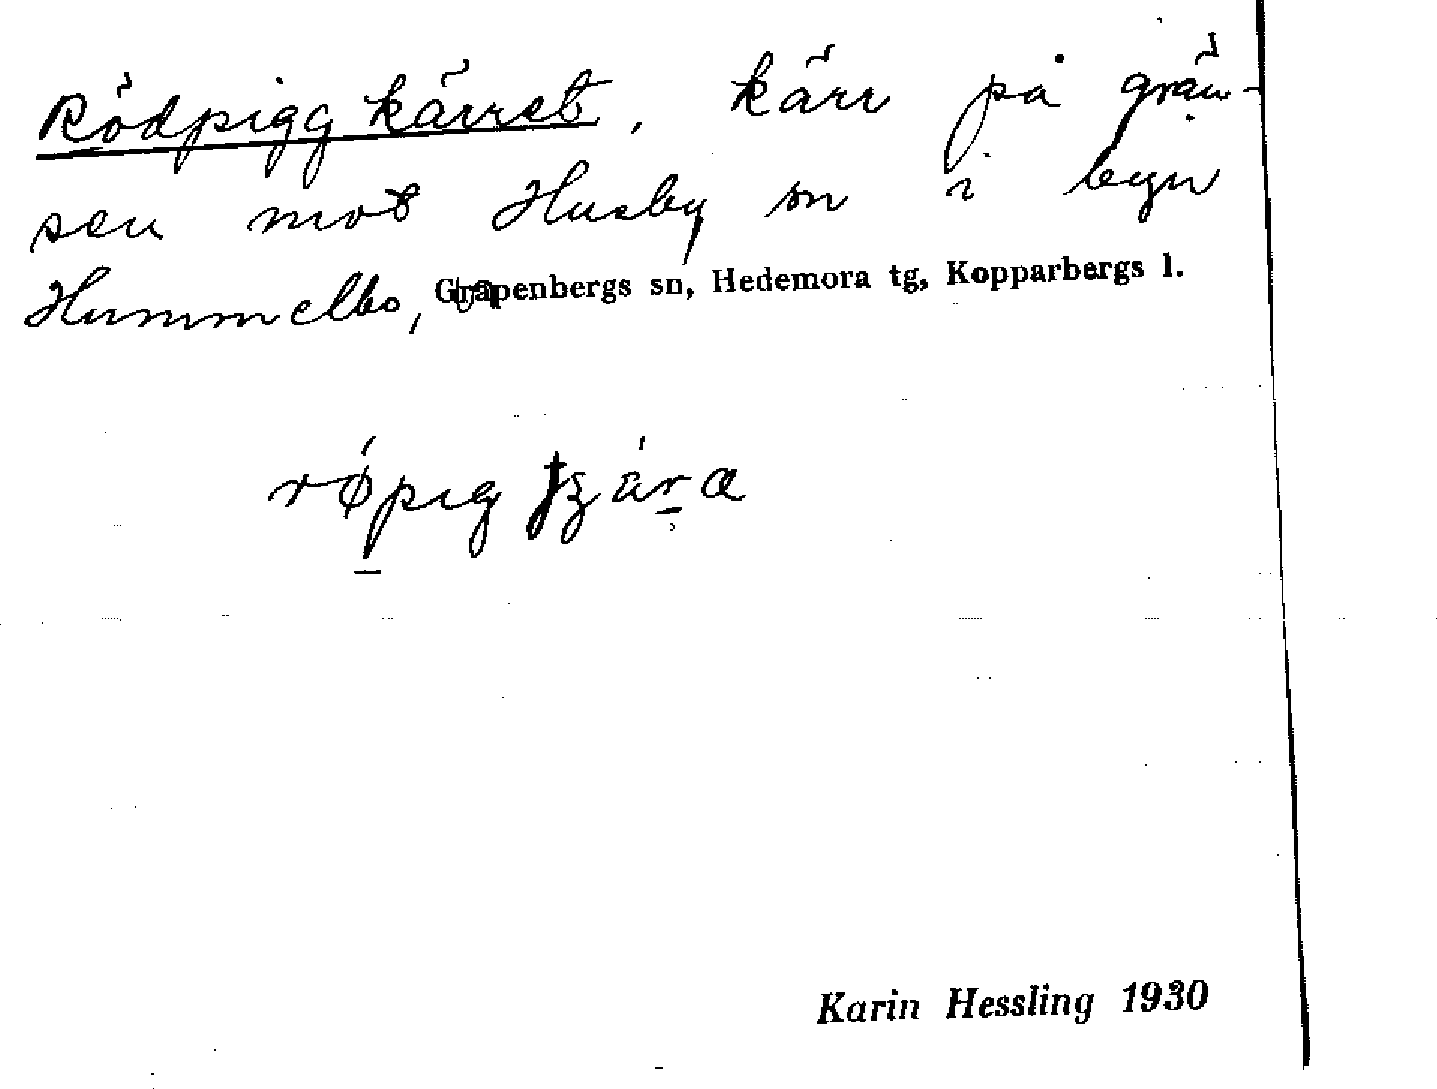 Rödpigg kärret, kärr på grän-
sen mot Husby sn i byn
Hummelbo, Grapenbergs sn, Hedemora tg, Kopparbergs l.
Karin Hessling 1930